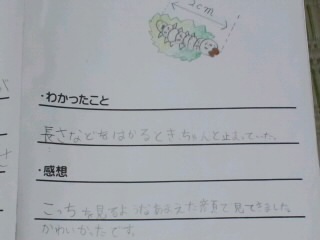 2cm
・わかったこと
長さなどをはかるとき、ちゃんと止まっていた。
・感想
こっちを見てような 顔で見てきました
かわいかったです。